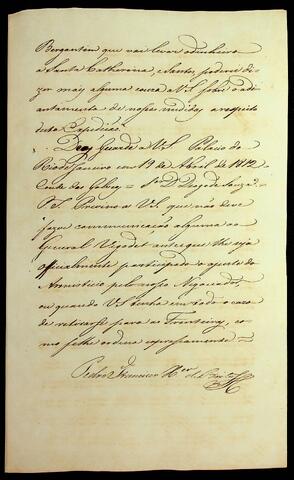 Bergantim que vai levar o dinheiro
a Santa Catherina, e Santos poderei di-
zer mais alguma couza a VS. sobre o adi-
antamento de nossas medidas a respeito
desta Expedição.
Deos Guarde a VS. Palacio do
Rio de Janeiro em 19 de Abril de 1812
Conde das Galveas = Sr. D. Diogo de Souza =
P.S. Previno a VS. que não deve
fazer communicação alguma ao
General Vigodet antes que lhe seja
officialmente participado o ajuste do
Armisticio pelo nosso Negociador,
ou quando VS. tenha em todo o cazo
de retirarse para as Fronteiras, co-
mo se lhe ordena expressamente =
Pedro Francisco